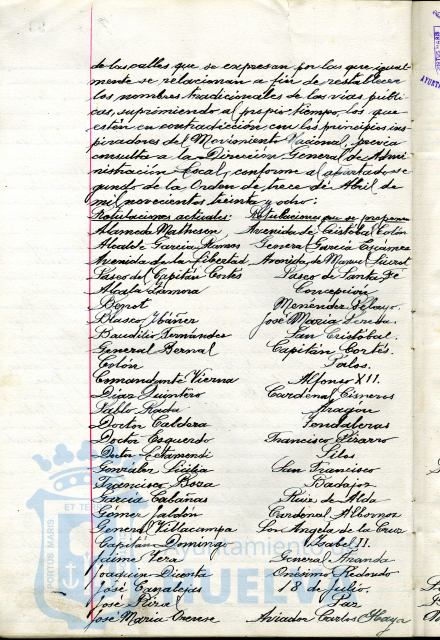 de las calles que se expresan por los que igual-
mente se relacionan a fin de restablecer
los nombres tradicionales de las vías públi-
cas, suprimiendo al propio tiempo, los que
estén en contradicción con los principios ins-
piradores del Movimiento Nacional, previa
consulta a la Dirección General de Admi-
nistración Local, conforme al apartado se-
gundo de la Orden de trece de Abril de
mil novecientos treinta y ocho:
Rotulaciones actuales: Rotulaciones que se proponen
Alameda Matheson, Avenida de Cristobal Colón
Alcalde García Ramos General García Escámez
Avenida de la Libertad Avenida de Manuel Siurot
Paseo del Capitán Cortés Paseo de Santa Fé
Alcalá Zamora Concepción
Benot Menéndez Pelayo.
Blasco Ibáñez José María
Baudilio Fernández San Cristóbal.
General Bernal Capitán Cortés.
Colón Palos.
Comandante Vierna Alfonso XII.
Díaz Quintero Cardenal Cisneros
Pablo Rada Aragón
Doctor Caldera
Doctor Esquerdo Francisco Pizarro
Letamendi Silos
González San Francisco
Francisco Boza Badajoz
García Cabañas Ruiz de Alda
Gómez Jaldón Cardenal Albornoz
General Villacampa Sor Angela de la Cruz
Capitán Domingo Isabel II.
Jaime Vera General Aranda
Joaquín Dicenta Onésimo Redondo
José Canalejas 18 de Julio.
José Rizal Paz
José María Orense Aviador Carlos Haya
Ayuntamiento de
HUELVA
PORTUS MARIS
ET TER
AYUNTA